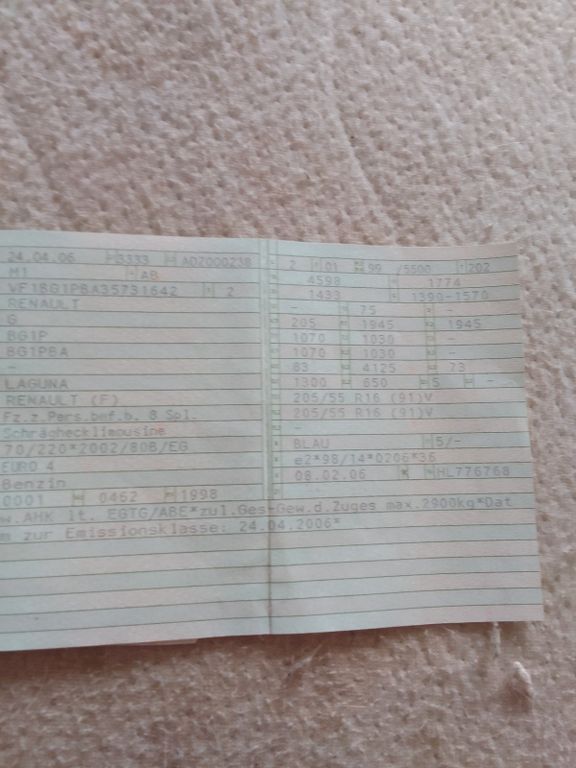 24.04.06 3333 ADZ000238
M1 AB
VF1BG1PBA35731642 2
RENAULT
G
BG1P
BG1PBA
-
LAGUNA
RENAULT (F)
Fz.z.Pers.bef.b. 8 Spl.
Schrägheckl imousine
70/220*2002/80B/EG
EURO 4
Benzin
0001 0462 1998
w.AHK lt. EGTG/ABE*zul.Ges-Gew.d.Zuges max.2900kg*Dat
m zur Emissionsklasse: 24.04.2006*
2 01 99 /5500 202
4598 1774
1433 1390-1570
- 75 -
205 1945 1945
1070 1030 -
1070 1030 -
83 4125 73
1300 650 5 -
205/55 R16 (91)V
205/55 R16 (91)V
-
BLAU 5/-
e2*98/14*0206*36
08.02.06 K HL776768